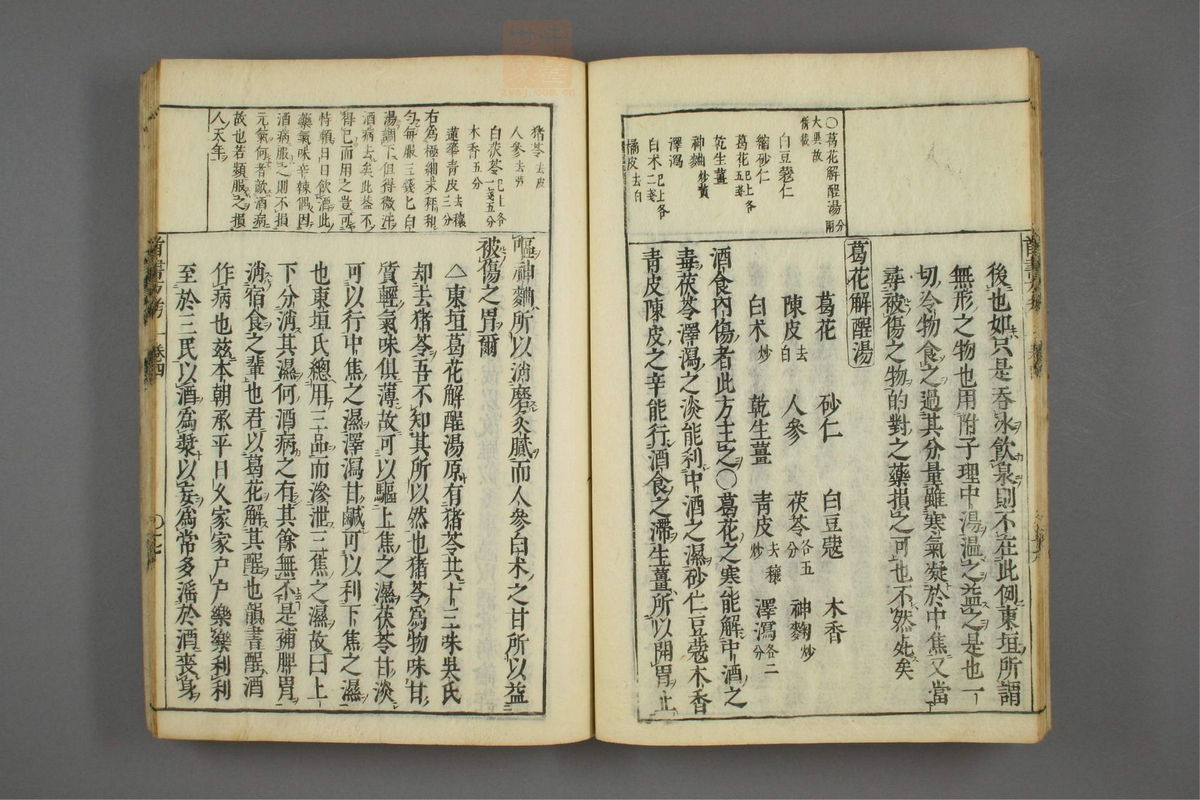 ○葛花解酲湯分兩
大異故
備載
白豆蔻仁
縮砂仁
葛花已上各五錢
乾生薑
神麯炒黃
澤瀉
白朮已上各二錢
橘皮去白
後也如只是吞冰飲泉則不在此例東垣所謂
無形之物也用附子理中湯溫之益之是也一
切冷物食之過其分量雖寒氣凝於中焦又當
尋被傷之物的對之藥損之可也不然死矣
葛花解酲湯
葛花 砂仁 白豆蔻 木香
陳皮去白 人參 茯苓各五分 神麴炒
白朮炒 乾生薑 青皮去穰炒 澤瀉各二分
酒食內傷者此方主之○葛花之寒能解中酒之
毒茯苓澤瀉之淡能利中酒之濕砂仁豆蔻木香
青皮陳皮之辛能行酒食之滯生薑所以開胃止
猪苓去皮
人參去蘆
白茯苓已上各一錢五分
木香五分
蓮華青皮去穰三分
右為極細末秤和
勻每服三錢匕白
湯調下但得微汗
酒病去矣此蓋不
得已而用之豈可
恃賴日日飲酒此
藥氣味辛辣偶因
酒病服之則不損
元氣何者敵酒病
故也若頻服之損
人天年
嘔神麴所以消磨炙膩而人參白朮之甘所以益
被傷之胃爾
△東垣葛花解酲湯原有猪苓共十三味吳氏
却去猪苓吾不知其所以然也猪苓為物味甘
質輕氣味俱薄故可以驅上焦之濕茯苓甘淡
可以行中焦之濕澤瀉甘鹹可以利下焦之濕
也東垣氏總用三品而滲泄三焦之濕故曰上
下分消其濕何酒病之有其餘無不是補脾胃
消宿食之輩也君以葛花解其酲也韻書酲酒
作病也茲本朝承平日久家家戶戶樂樂利利
至於三民以酒為漿以妄為常多滛於酒喪身